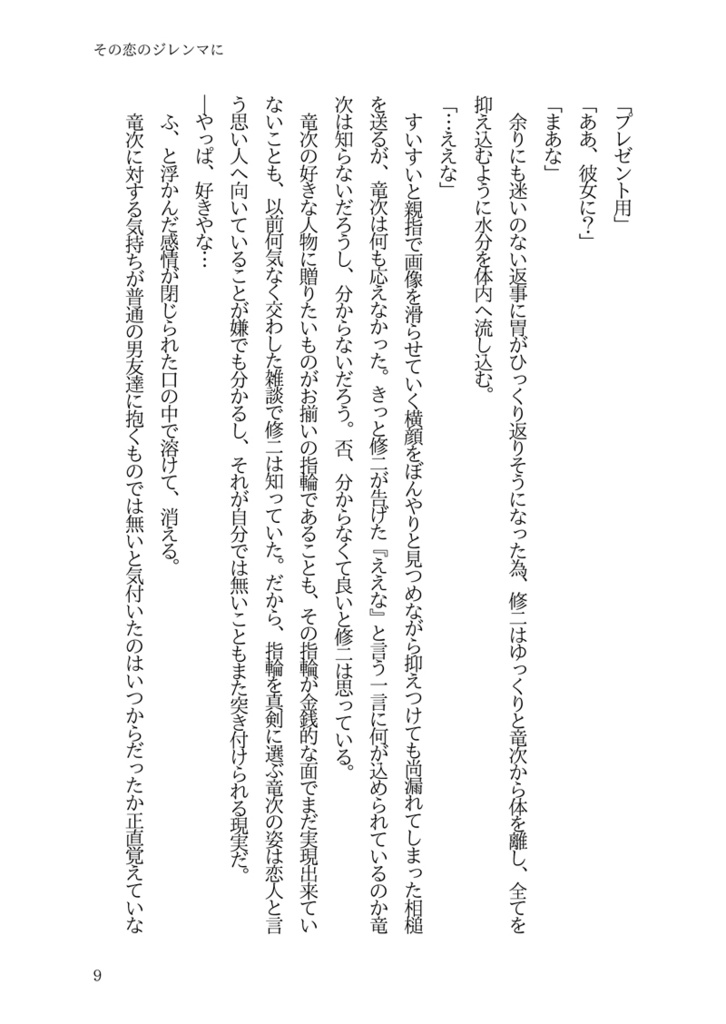 その恋のジレンマに
「プレゼント用」
「ああ、彼女に?」
「まあな」
余りにも迷いのない返事に胃がひっくり返りそうになった為、修二はゆっくりと竜次から体を離し、全てを
抑え込むように水分を体内へ流し込む。
「…ええな」
すいすいと親指で画像を滑らせていく横顔をぼんやりと見つめながら抑えつけても尚漏れてしまった相槌
を送るが、竜次は何も応えなかった。きっと修二が告げた『ええな』と言う一言に何が込められているのか竜
次は知らないだろうし、分からないだろう。否、分からなくて良いと修二は思っている。
竜次の好きな人物に贈りたいものがお揃いの指輪であることも、その指輪が金銭的な面でまだ実現出来てい
ないことも、以前何気なく交わした雑談で修二は知っていた。だから、指輪を真剣に選ぶ竜次の姿は恋人と言
う思い人へ向いていることが嫌でも分かるし、それが自分では無いこともまた突き付けられる現実だ。
―やっぱ、好きやな…
ふ、と浮かんだ感情が閉じられた口の中で溶けて、消える。
竜次に対する気持ちが普通の男友達に抱くものでは無いと気付いたのはいつからだったか正直覚えていな
9